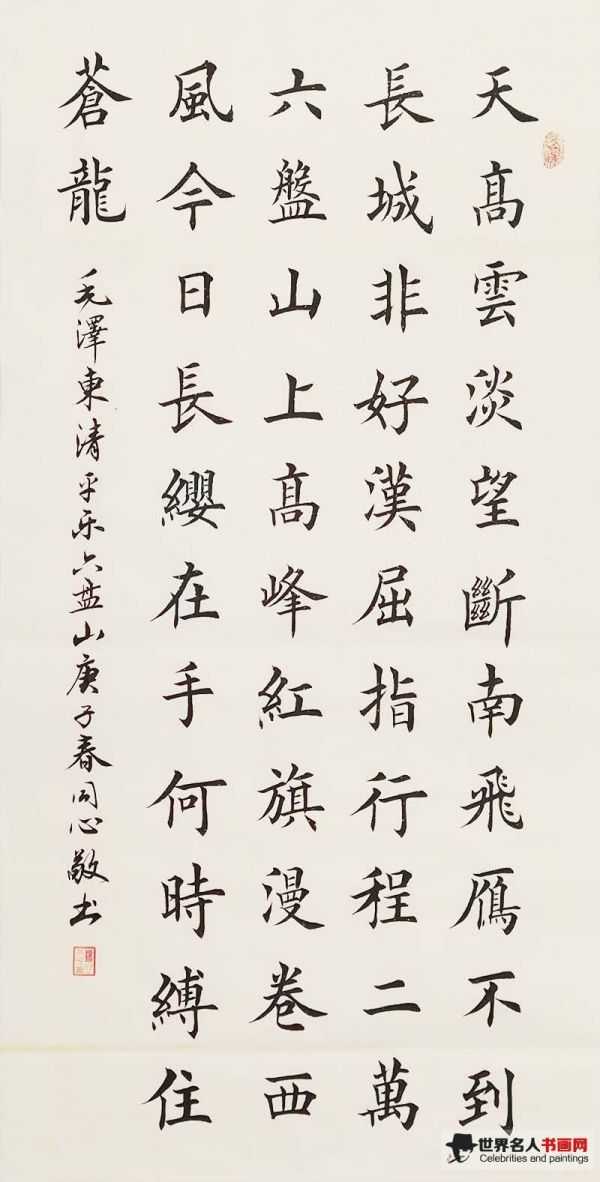 天高雲淡望斷南飛雁不到
長城非好漢屈指行程二萬
六盤山上高峰紅旗漫卷西
風今日長纓在手何時縛住
蒼龍
毛澤東清平乐六盘山庚子春同心敬书
世界名人书画网
Celebrities and paintings